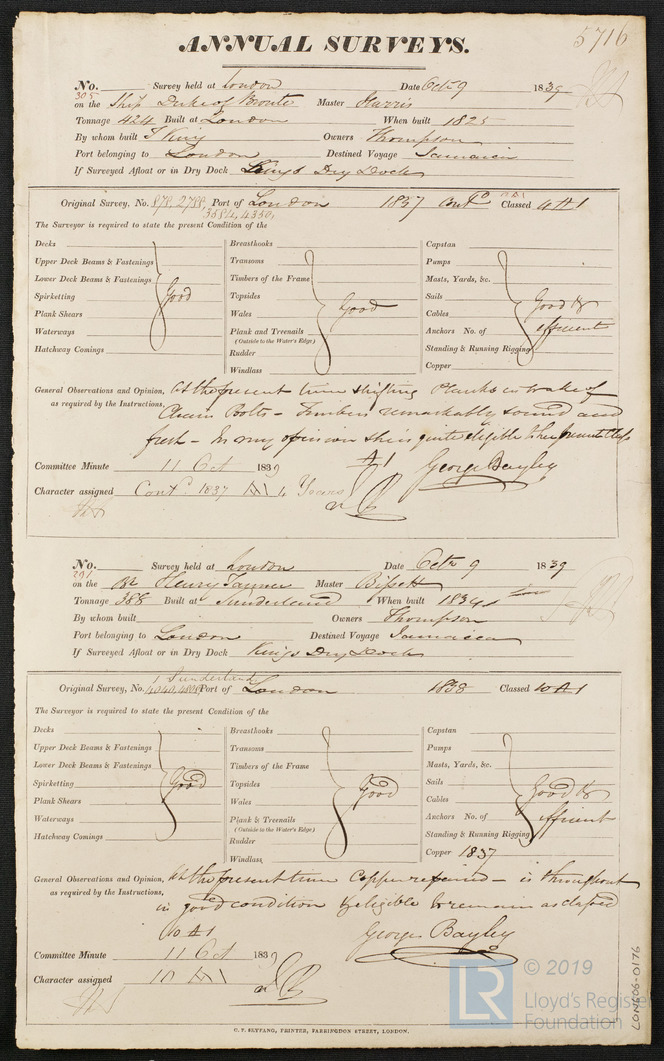 5716
ANNUAL SURVEYS.
No. 305 Survey held at London Date Octr 9 1839
on the Ship Duke of Bronte Master Harris
Tonnage 424 Built at London When built 1825
By whom built J King Owners Thompson
Port belonging to London Destined Voyage Jamaica
If Surveyed Afloat or in Dry Dock Kings Dry Dock
Original Survey, No. Port of London 1837 Contd Classed 4 A1
3584, 4350,
The Surveyor is required to state the present Condition of the
Decks Breasthooks Capstan
Upper Deck Beams & Fastenings Transoms Pumps
Lower Deck Beams & Fastenings Timbers of the Frame Masts, Yards, &c.
Spirketting Good Topsides Good Sails Good &
Plank Shears Wales Cables efficient
Waterways Plank and Treenails Anchors No. of
(Outside to the Water's Edge)
Hatchway Comings Rudder Standing & Running Rigging
Windlass Copper
General Observations and Opinion, At the present time shifting Planks in wake of
as required by the Instructions, Chain Bolts - Timbers remarkably sound and
fresh - In my opinion she is quite eligible to her present class
A1 George Bayley
Committee Minute 11 Oct 1839
Character assigned Contd 1837 A1 4 Years
No. 291 Survey held at London Date Octr 9 1839
on the Br Henry Tanner Master Bissett
Tonnage 388 Built at Sunderland When built 1834
By whom built Owners Thompson
Port belonging to London Destined Voyage Jamaica
If Surveyed Afloat or in Dry Dock Kings Dry Dock
Sunderland
Original Survey, No. Port of London 1838 Classed 10 A1
The Surveyor is required to state the present Condition of the
Decks Breasthooks Capstan
Upper Deck Beams & Fastenings Transoms Pumps
Lower Deck Beams & Fastenings Timbers of the Frame Masts, Yards, &c.
Spirketting Good Topsides Good Sails Good &
Plank Shears Wales Cables efficient
Waterways Plank & Treenails Anchors No. of
(Outside to the Water's Edge)
Hatchway Comings Rudder Standing & Running Rigging
Windlass Copper 1837
General Observations and Opinion, At the present time Copper repaired - is throughout
as required by the Instructions, in good condition & eligible to remain as classed
10 A1 George Bayley
Committee Minute 11 Oct 1839
Character assigned 10 A1
C. F. SEYFANG, PRINTER, FARRINGDON STREET, LONDON.
LR © 2019
Lloyd's Register
Foundation
LON606-0176